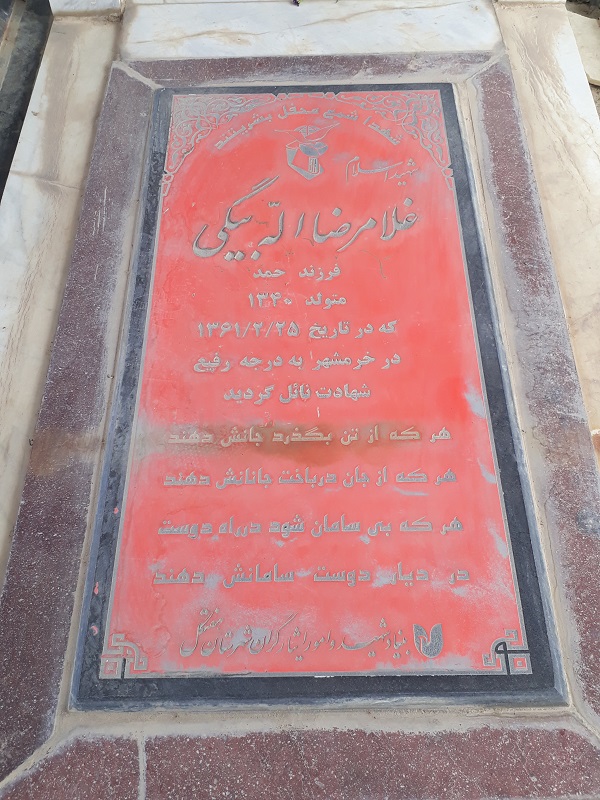 شهدا شمع محفل بشریتند
شهید اسلام
غلامرضا اله بیگی
فرزند حمد
متولد ۱۳۴۰
که در تاریخ ۱۳۶۱/۲/۲۵
در خرمشهر به درجه رفیع
شهادت نائل گردید
هر که از تن بگذرد جانش دهند
هر که از جان درباخت جانانش دهند
هر که بی سامان شود درراه دوست
در دیار دوست سامانش دهند
بنیاد شهید و امور ایثارگران شهرستان هفتگل